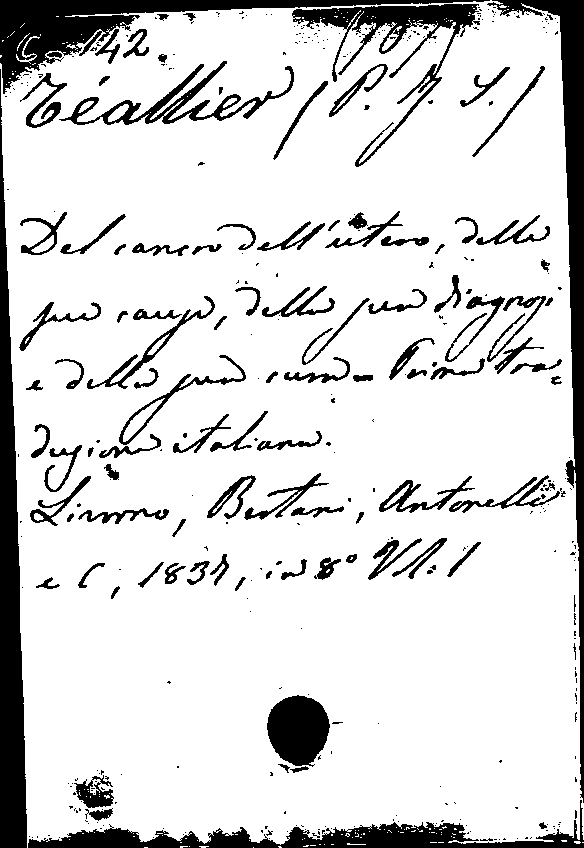 C 142
Téallier (P. J. S.)
Del cancro dell'utero, delle
sue cause, della sua diagnosi
e della sua cura = Prima tra=
duzione italiana.
Livorno, Bertani, Antonelli
e C, 1837, in 8° Vl. 1